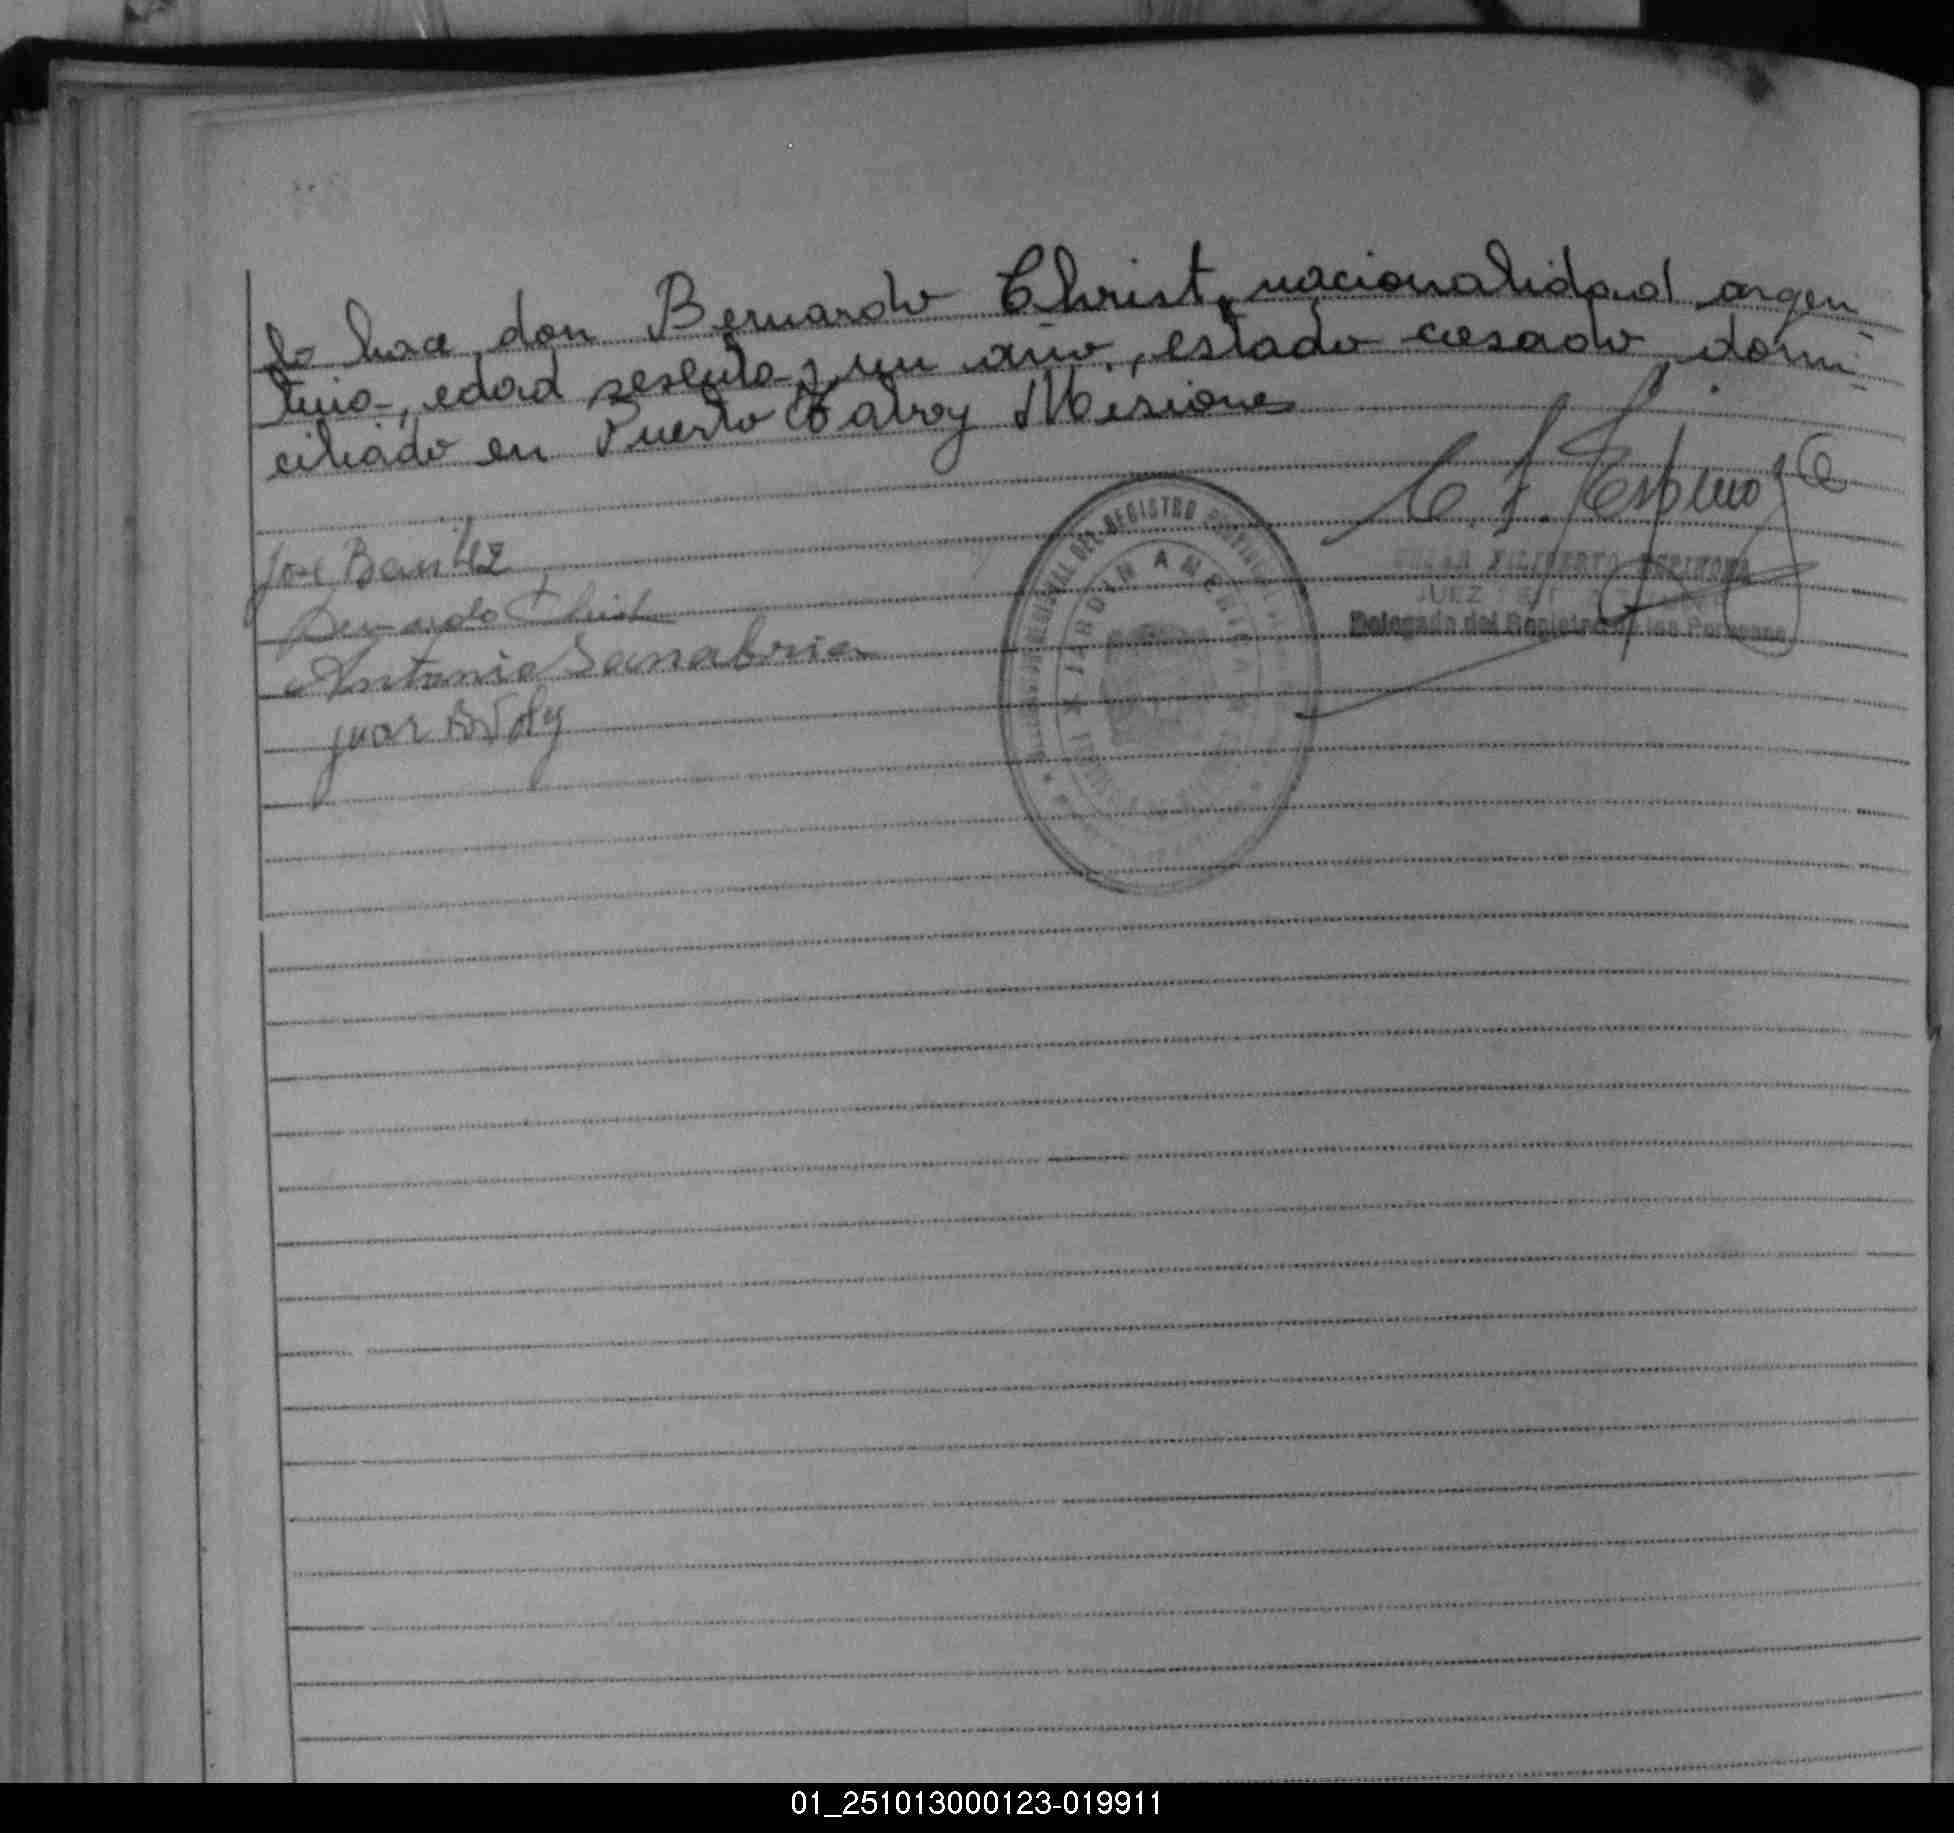 lo hace don Bernardo Christ, nacionalidad argen
tina, edad sesenta y un año, estado casado, domi-
ciliado en Puerto Yabroy Misiones
C. F. Espinoza
Jose Benitez
Bernardo Christ
Antonio Sanabria
juan
DEL REGISTRO PROVINCIAL
JARDIN AMERICA
FILIBERTO ESPINOZA
JUEZ
Delegado del Registro de las Personas
01_251013000123-019911